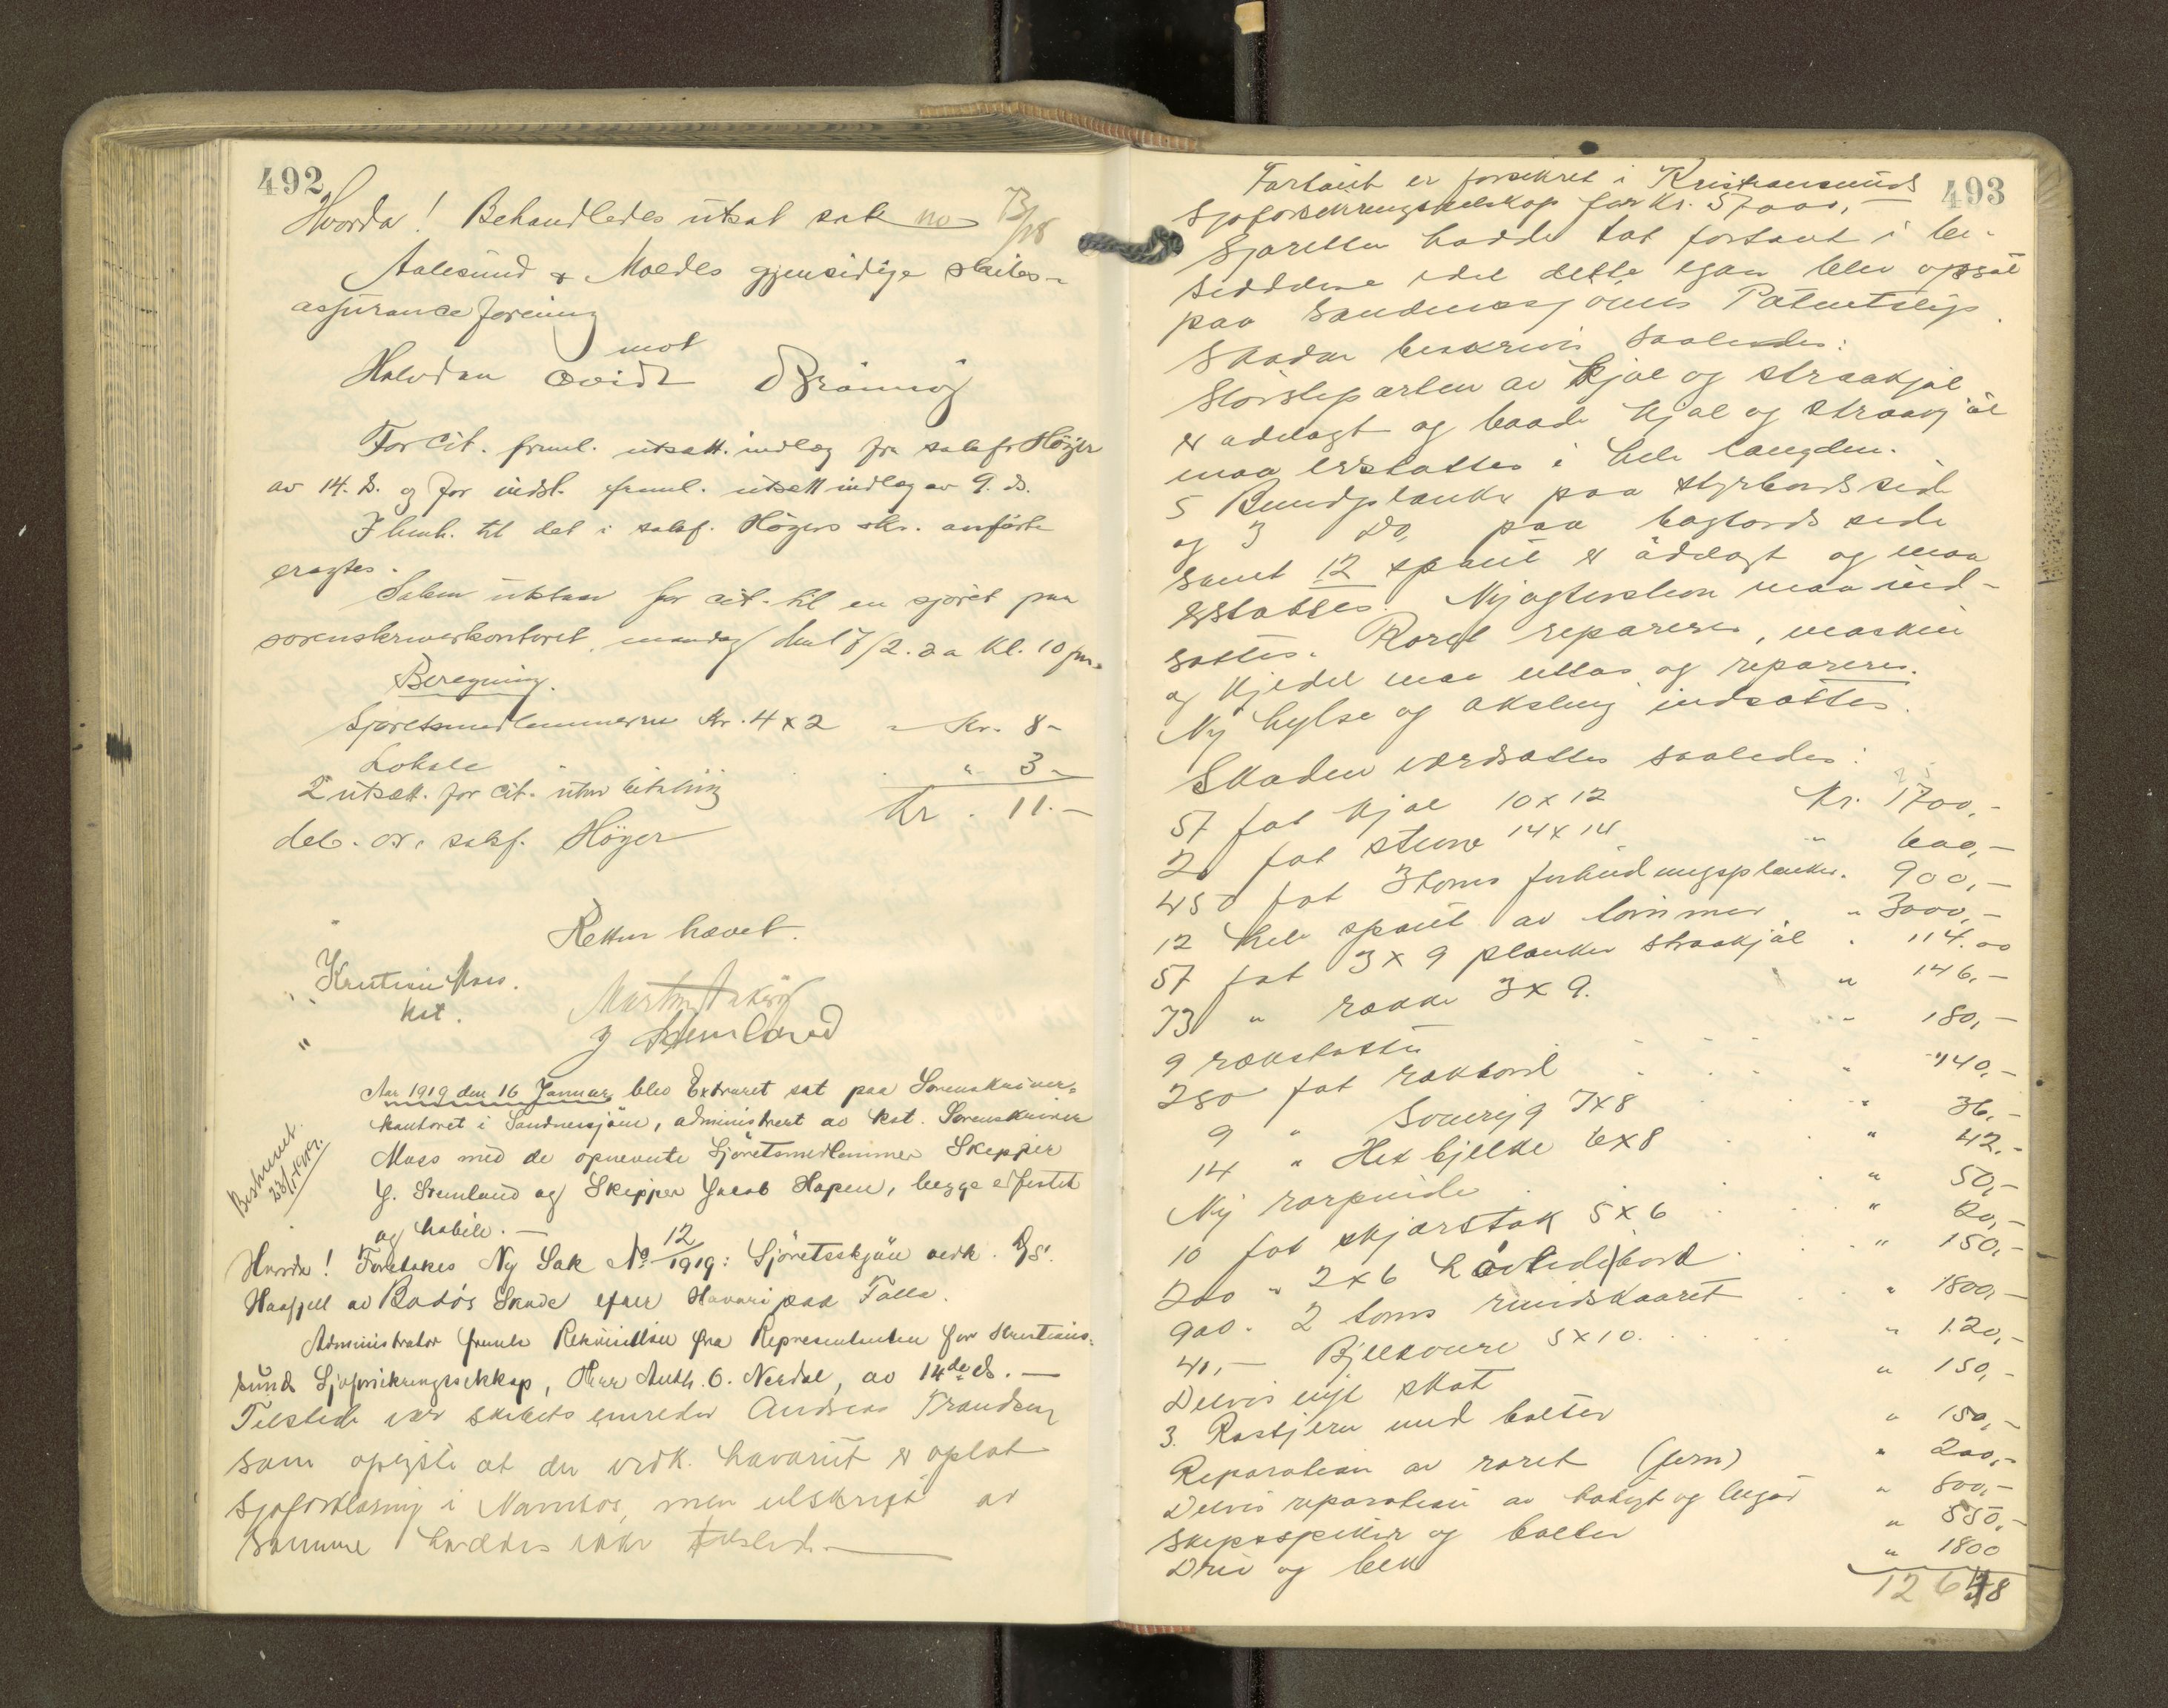 492
Hvorda! Behandledes utsat sak no 73/18
Aalesund & Moldes gjensidige skibs-
assuranceforening
mot
Halvdan Qvidt Brönnöy
For cit. freml. utsætt. indlæg fra sakf. Höyer
av 14. ds. og for indst. freml. utsett indlæg av 9. ds.
I henh. til det i sakf. Höyers skr. anförte
eragtes.
Saken utstaar for cit. til en sjöret paa
sorenskriverkontoret, mandag den 17/2. d a kl. 10 fm.
Beregning.
Sjöretsmedlemmerne Kr. 4 x 2 - Kr. 8 -
Lokale " 3 -
2 utsætt. for cit. uten betaling
Kr. 11. -
deb. or. sakf. Höyer
Retten hævet.
Kristian Moss.
kst.
J Stemland
Aar 1919 den 16 Januar blev Extraret sat paa Sorenskriver-
kontoret i Sandnessjöen, administrert av kst. Sorenskriver
Moss med de opnevnte Sjöretsmedlemmer Skipper
J. Stemland og Skipper Jacob Hopen, begge edfestet
og habile. -
Beskrevet
23/1 1919.
Hvorda! Foretokes Ny Sak No 12/1919: Sjöretsskjön vedk. D/S
Haafjell av Bodö's Skade efter Havari paa Folla.
Administrator fremla Rekvisition fra Representanten for Kristian-
sunds Sjöforsikringsselskap, Herr Anth. O. Nerdal, av 14de ds. -
Tilstede var skibets emreder Andreas Frandsen
som oplyste at der vedk. havariet er optat
sjöforklaring i Namsos, men utskrift av
samme haddes ikke tilstede. -
493
Fartöiet er forsikret i Kristiansunds
Sjöforsikringsselskap for Kr. 57000, -
Sjöretten hadde tat fartöiet i be-
siddelse idet dette igaar blev opsat
paa Sandnessjöens Patentslip.
Skaden beskrives saaledes:
Störsteparten av kjöl og straakjöl
er ödelagt og baade kjöl og straakjöl
maa erstattes i hele længden.
5 Bundplanke paa styrbords side
og 3 Do, paa bagbords side
samt 12 spant er ödelagt og maa
erstattes. Ny agterstevn maa ind-
sættes. Roret repareres, maskin
og kjedel maa uttas og repareres.
Ny hylse og aksling indsættes.
Skaden værdsættes saaledes:
57 fot kjöl 10 x 12 Kr. 1700,-
20 fot stevne 14 x 14 " 600,-
450 fot 3 toms forhudningsplanker. 900,-
12 hele spant av tömmer. " 3000,-
57 fot 3 x 9 planker straakjöl . 114.00
73 " række 3 x 9. " 146,-
9 rækstötte " 180,-
280 fot rækbord " 140,-
9 " 7 x 8 " 36,-
14 " Hek bjelke 6 x 8 " 42,-
Ny " 50,-
10 fot skjærstok 5 x 6 " 20,-
200 " 2 x 6 bord " 150,-
900 " 2 toms " 1800,-
40,- Bjelkevære 5 x 10. " 120,-
Delvis nyt skot " 150,-
3. Røstjern med bolter " 150,-
Reparation av roret (jern) " 200,-
Delvis reparation av " 800,-
Skipsspiker og bolter " 550,-
Driv og bek " 1800
12648